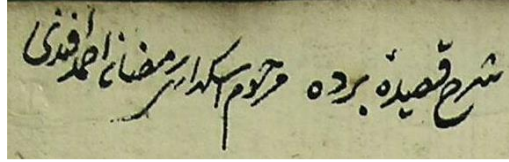 شرح قصیدهٔ برده مرحوم اسکداری رمضان احمد افندی